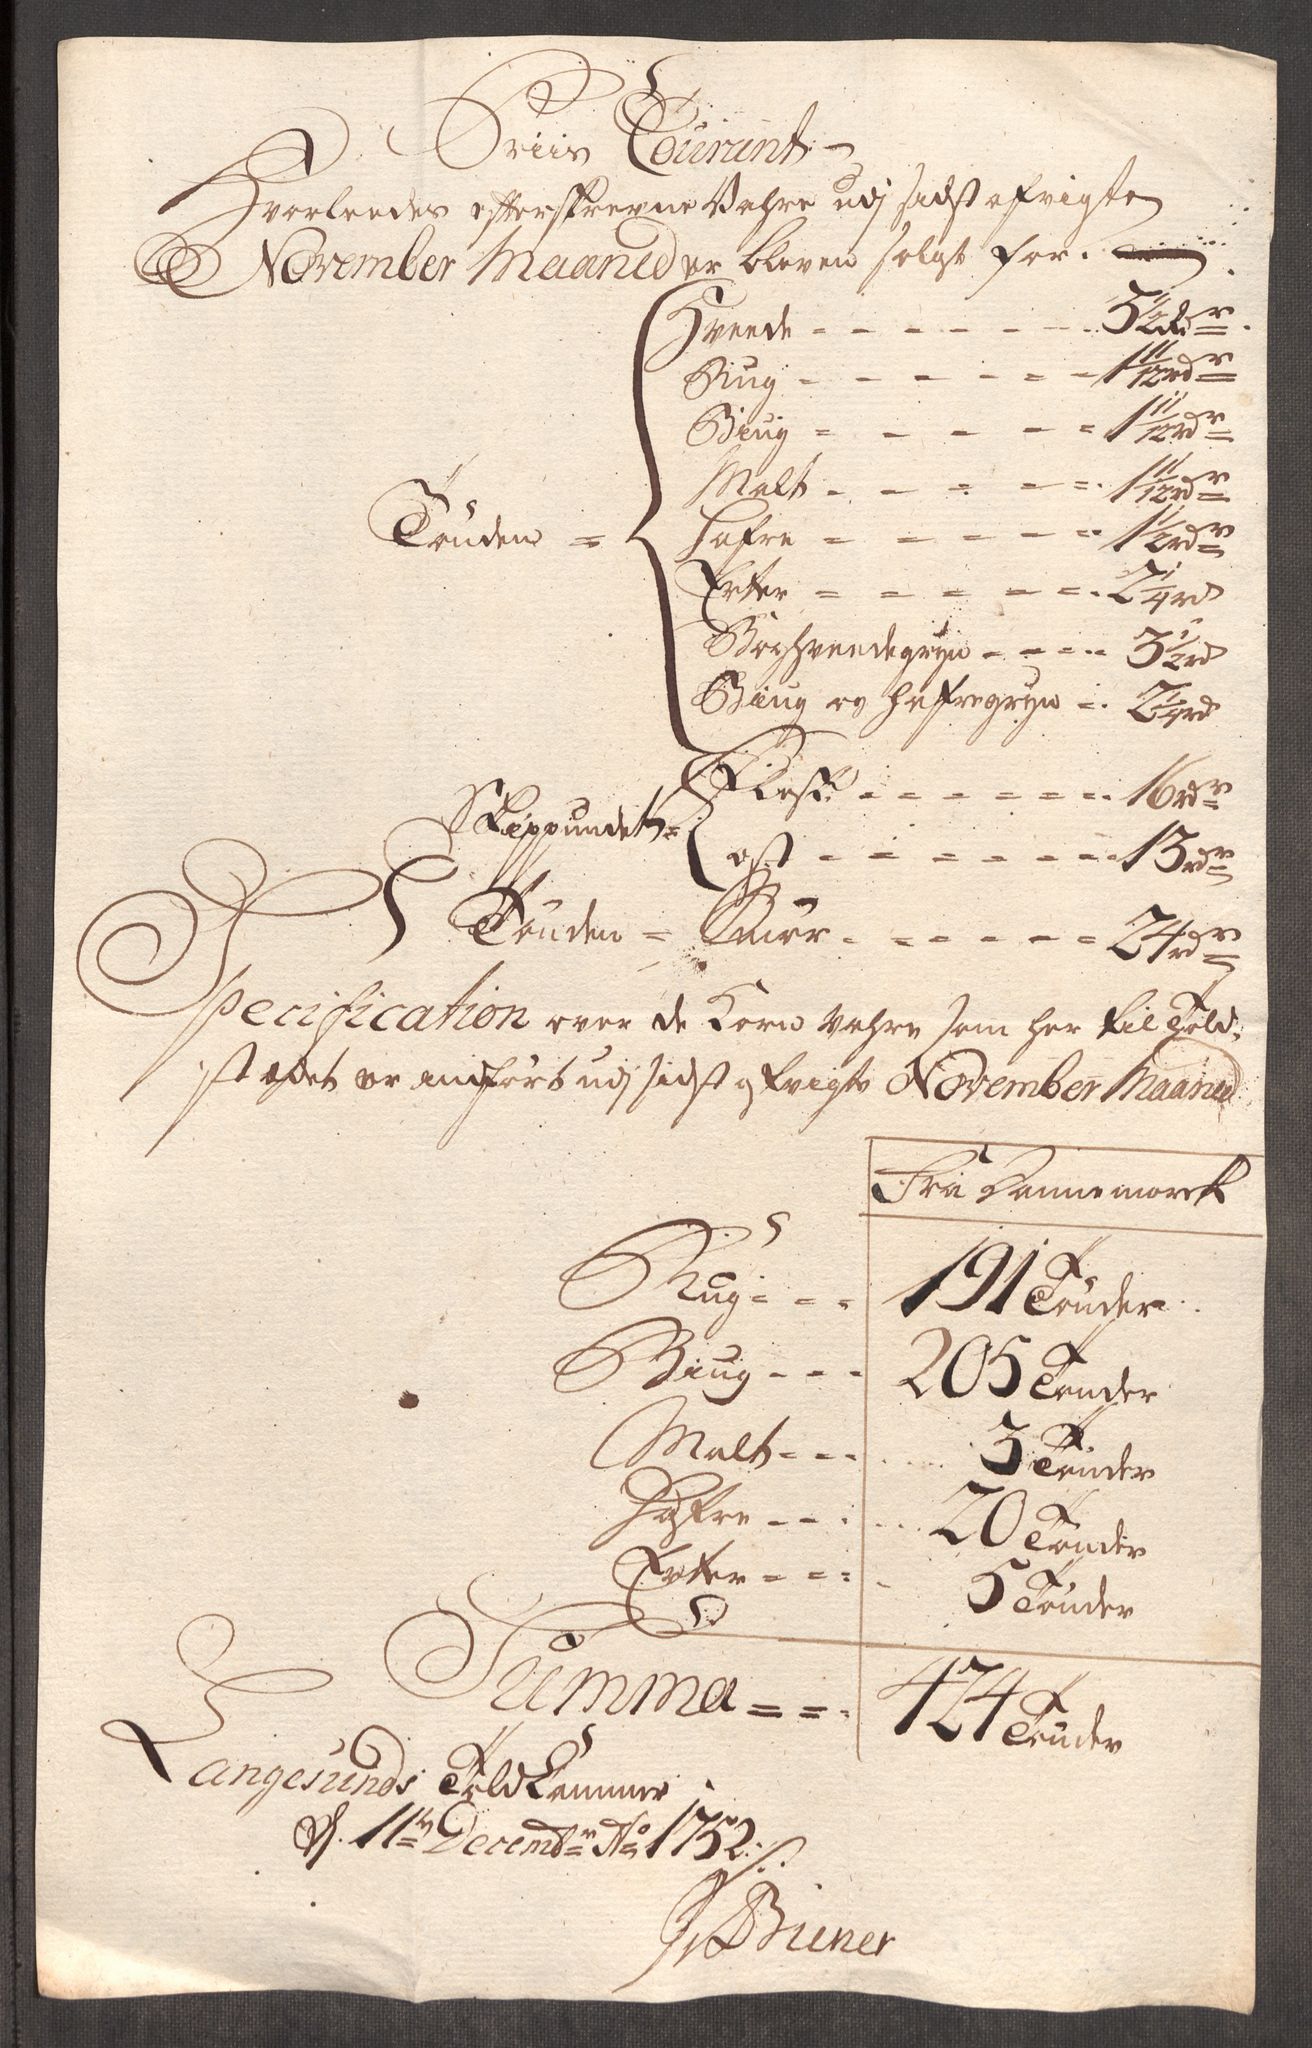 Priis Courant
Hvorleedes efterskrevne Vahre udj sidst afvigte
November Maaned er bleven solgt for.
Hveede - - - - - 5 1/2 rdr
Rug - - - - - 1 11/12 rdr
Biug - - - - - 1 11/12 rdr
Malt - - - - - 1 11/12 rdr
Tönden = Hafre - - - - - 1 1/2 rdr
Erter - - - - - 2 1/4 rd
Boghveedegryn - - - - 3 1/2 rd
Biug og hafregryn - 2 1/4 rd
Skippundet = Flesk - - - - - 16 rdr
ost - - - - - 13 rdr
Tönden = Smör - - - - - 24 rdr
Specification over de Korn Vahre som her til Told-
stædet er indfört udj sidst afvigte November Maaned
Fra Dannemarck
Rug - - - 191 Tönder
Biug - - - 205 Tönder
Malt - - - 3 Tönder
Hafre - - - 20 Tönder
Erter - - - 5 Tönder
Summa = = - 424 Tönder
Langesunds Told Kammer
d. 11te Decembr Ao 1752
Biener